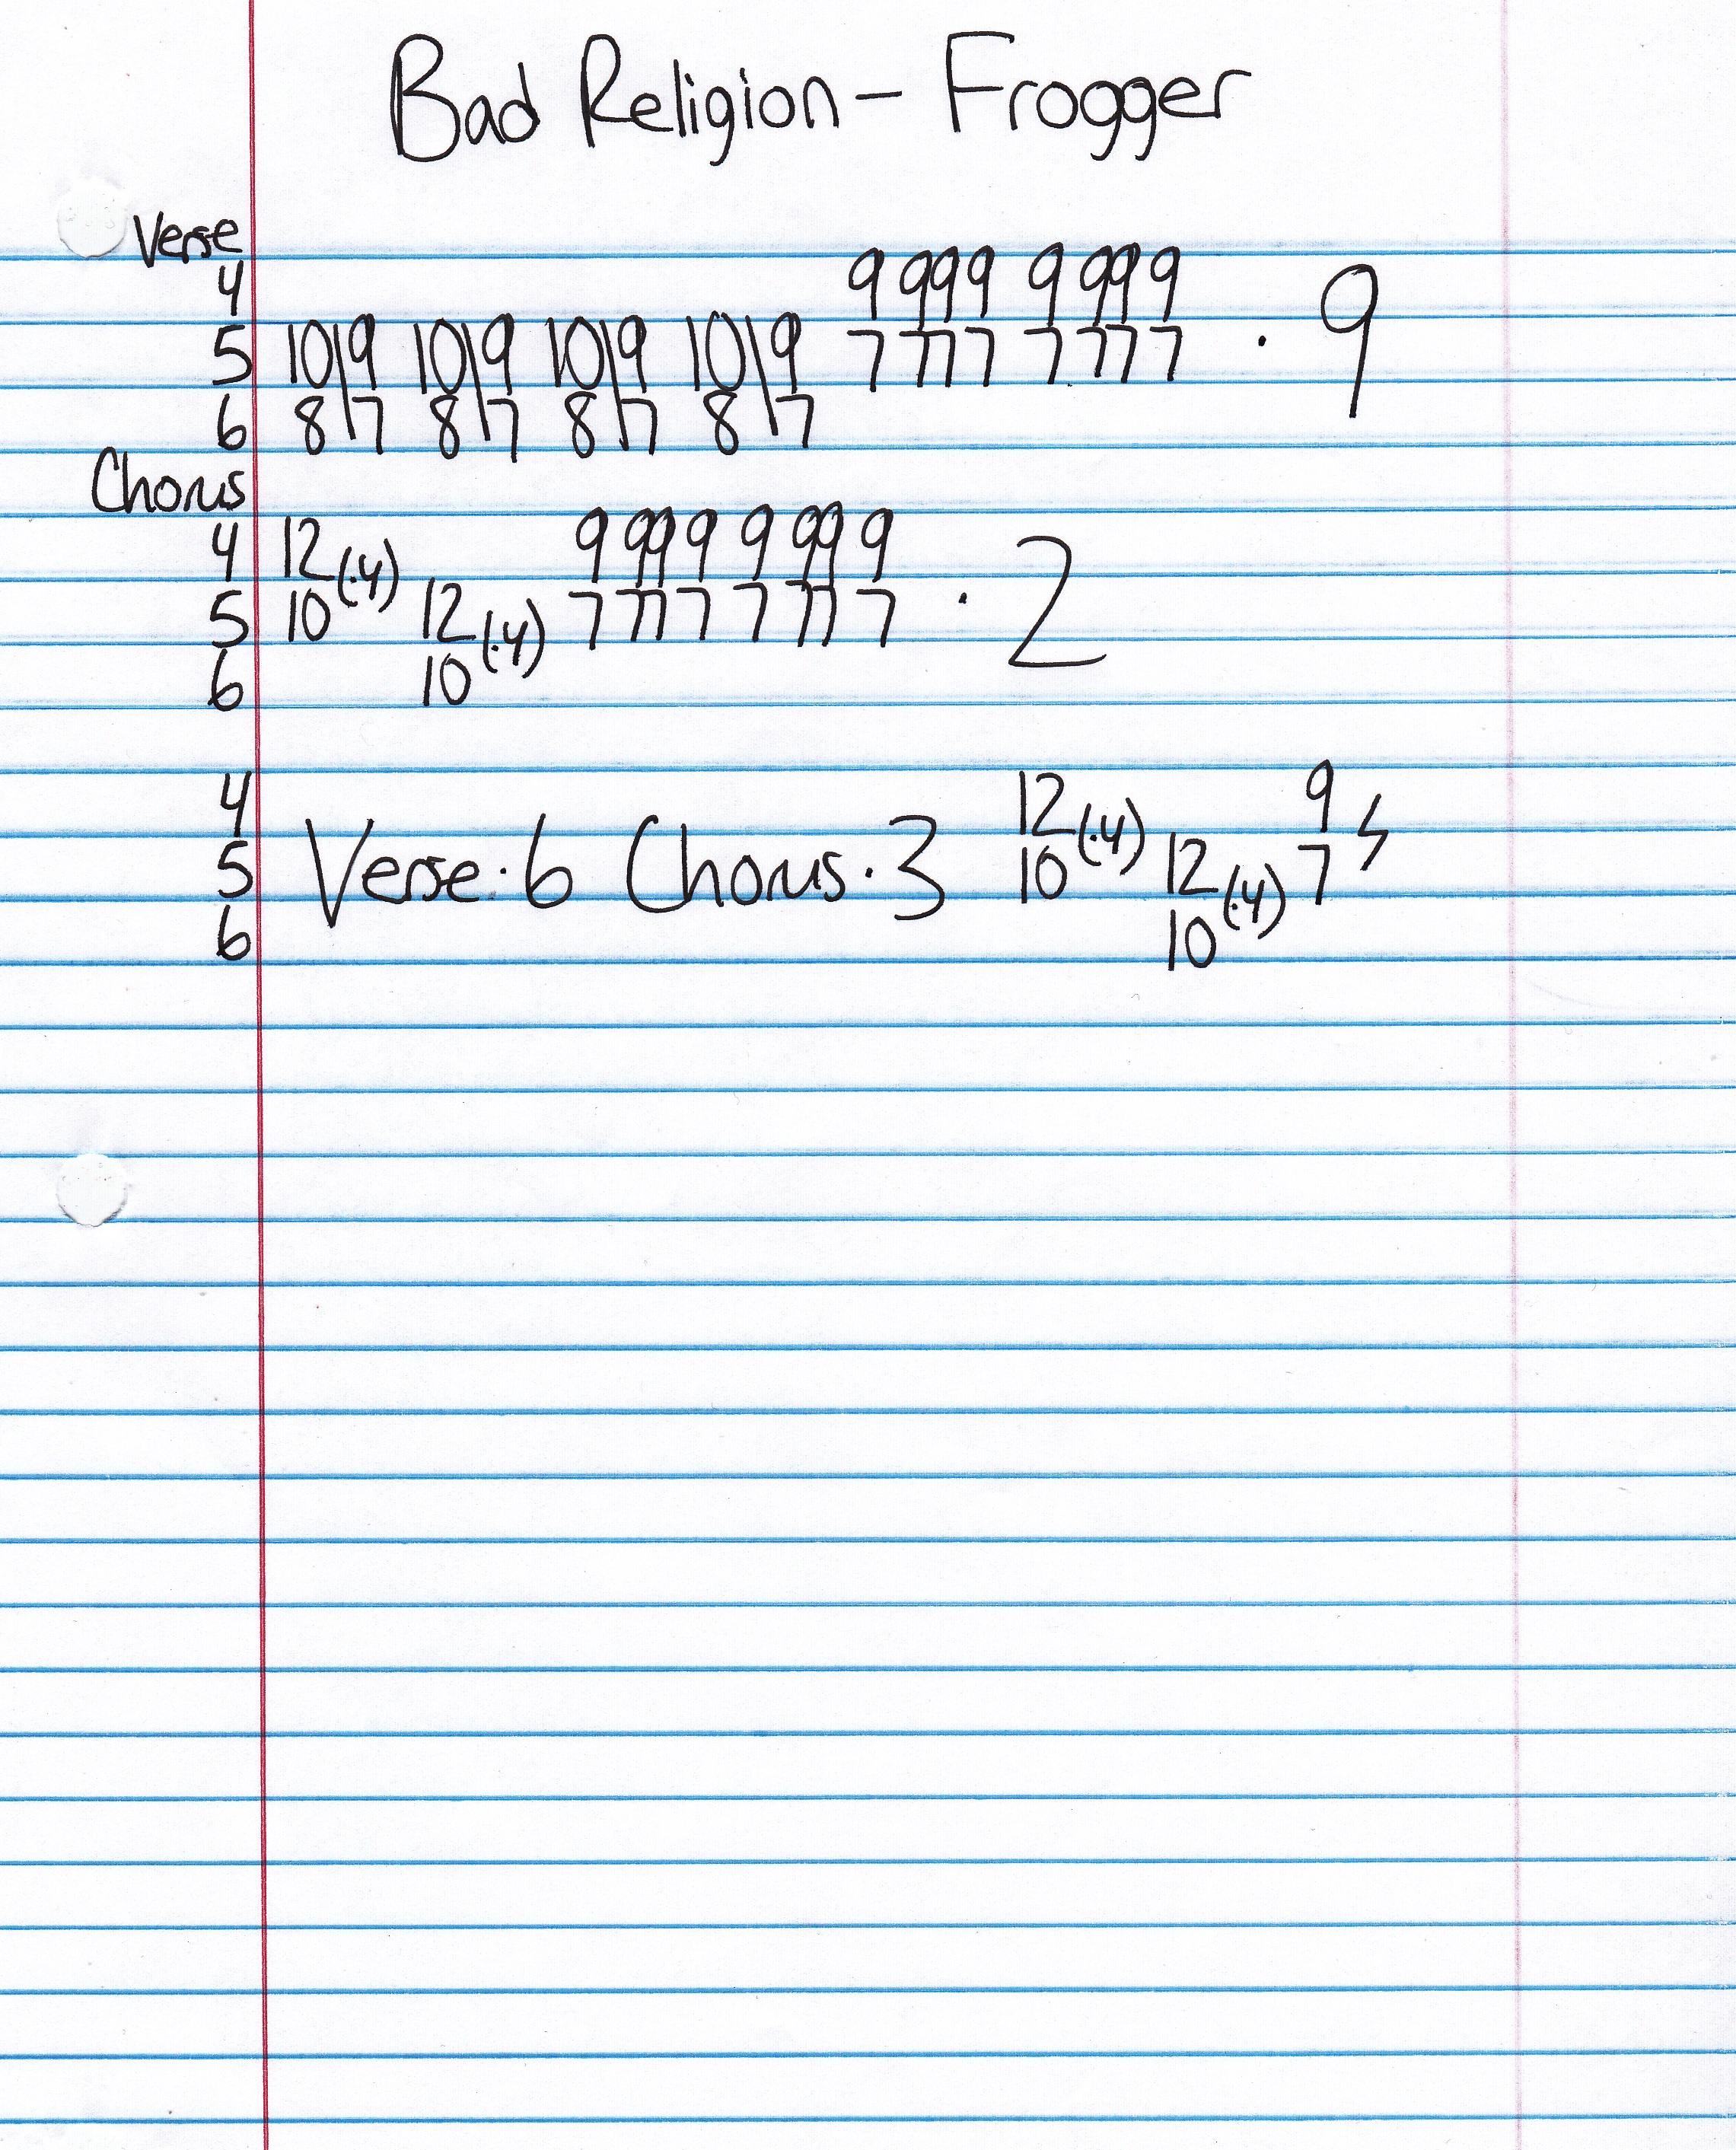 Bad Religion - Frogger
Verse
4 9 999 9 999 9
5 10\9 10\9 10\9 10\9 7 777 7 777 7 · 9
6 8\7 8\7 8\7 8\7
Chorus
4 12 (·4) 9 999 9 999
5 10 12 (·4) 7 777 7 777 · 2
6 10
4 12 (·4) 9
5 Verse·6 Chorus·3 10 12 (·4) 7
6 10